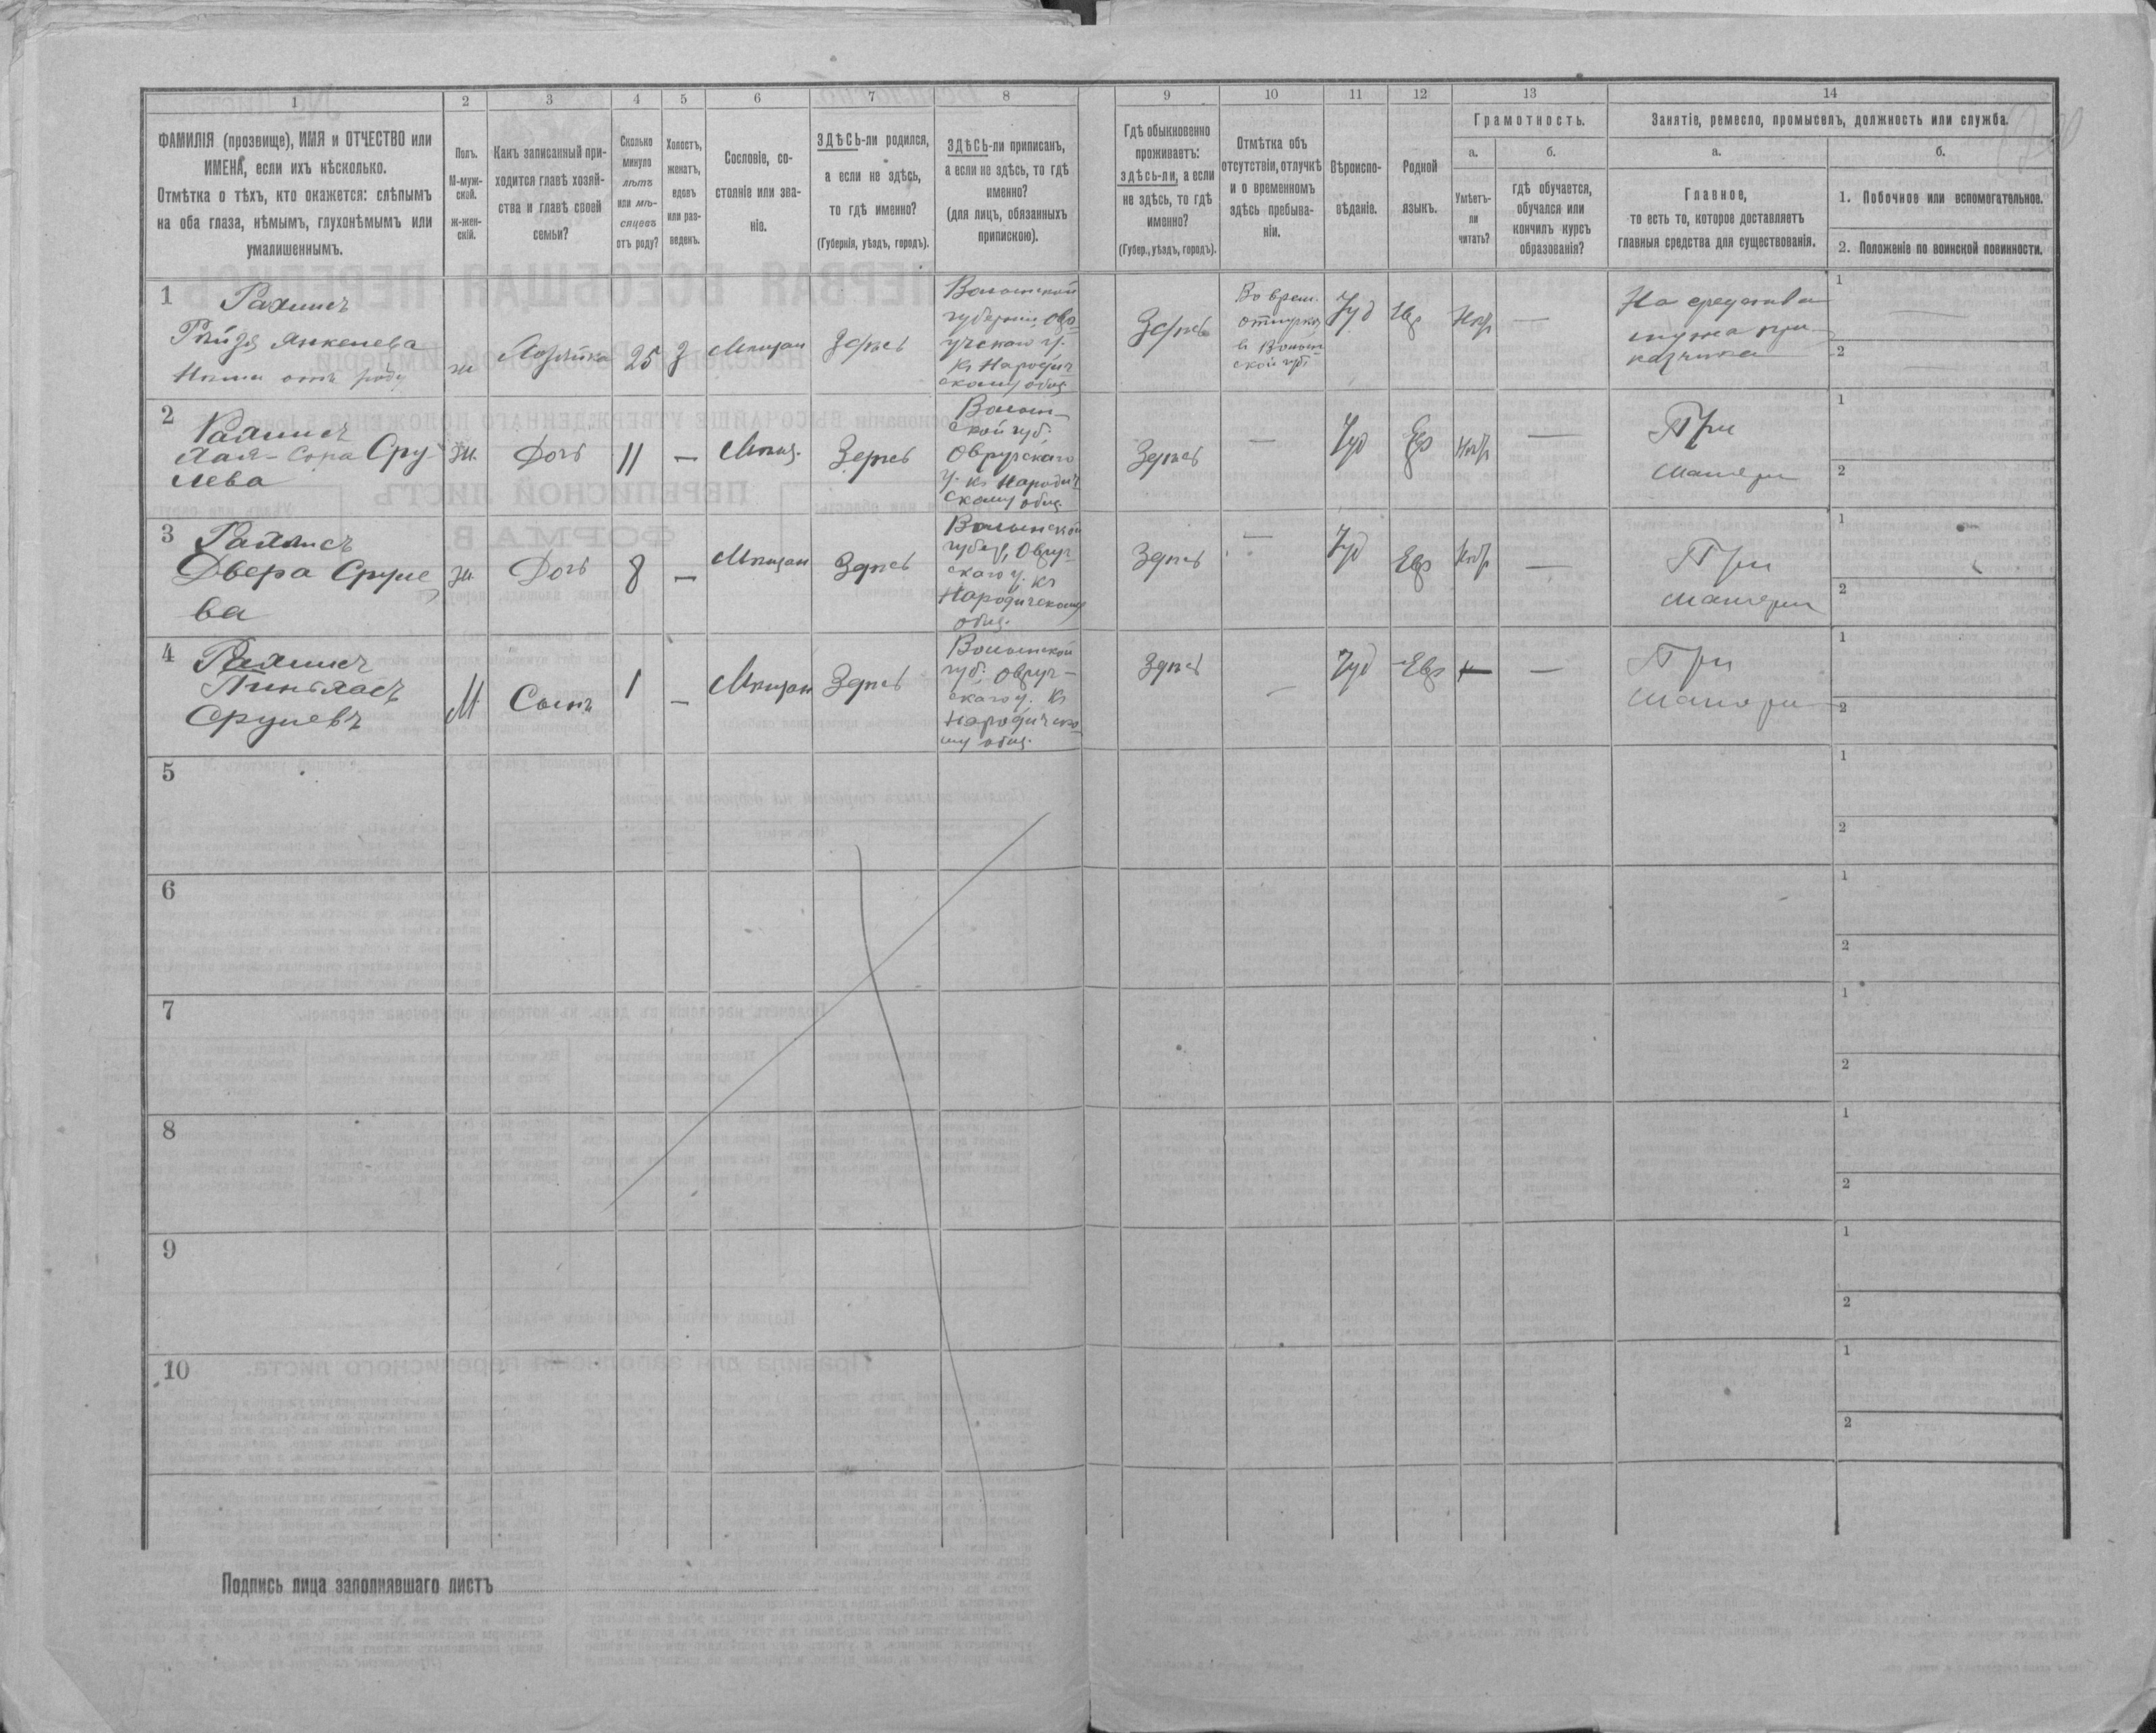 1 2 3 4 5 6 7 8 9 10 11 12 13 14
ФАМИЛІЯ (прозвище), ИМЯ и ОТЧЕСТВО или
ИМЕНА, если ихъ нѣсколько.
Отмѣтка о тѣхъ, кто окажется: слѣпымъ
на оба глаза, нѣмымъ, глухонѣмымъ или
умалишеннымъ.
Полъ.
М-муж-
ской.
ж-жен-
скій.
Какъ записанный при-
ходится главѣ хозяй-
ства и главѣ своей
семьи?
Сколько
минуло
лѣтъ
или мѣ-
сяцевъ
отъ роду?
Холостъ,
женатъ,
вдовъ
или раз-
веденъ.
Сословіе, со-
стояніе или зва-
ніе.
ЗДѢСЬ-ли родился,
а если не здѣсь,
то гдѣ именно?
(Губернія, уѣздъ, городъ).
ЗДѢСЬ-ли приписанъ,
а если не здѣсь, то гдѣ
именно?
(для лицъ, обязанныхъ
припискою).
Гдѣ обыкновенно
проживаетъ:
здѣсь-ли, а если
не здѣсь, то гдѣ
именно?
(Губер., уѣздъ, городъ).
Отмѣтка объ
отсутствіи, отлучкѣ
и о временномъ
здѣсь пребыва-
ніи.
Вѣроиспо-
вѣданіе.
Родной
языкъ.
Грамотность.
а.
Умѣетъ-
ли
читать?
б.
гдѣ обучается,
обучался или
кончилъ курсъ
образованія?
Занятіе, ремесло, промыселъ, должность или служба.
а.
Главное,
то есть то, которое доставляетъ
главныя средства для существованія.
б.
1. Побочное или вспомогательное.
2. Положеніе по воинской повинности.
1
Янкелева
ж
Хозяйка
25
З
Мѣщан
Здѣсь
Волынской
губерніи, Овр
учскаго у.
къ Народич
скому общ
Здѣсь
Во врем.
отлучкѣ
в Волын
ской губ
Іуд
Евр
Нѣт
—
На средства
мужа при-
казчика
1 —
2 —
2
Хая-Сора Сру
лева
ж
Дочь
11
—
Мѣщ.
Здѣсь
Волын-
ской губ.
Овручскаго
у. къ Народич
скому общ.
Здѣсь
—
Іуд
Евр
Нѣт
—
При
матери
1
2
3
Двера Сруле
ва
ж
Дочь
8
—
Мѣщан
Здѣсь
Волынской
губер, Овруч
скаго у. къ
Народичскому
общ.
Здѣсь
—
Іуд
Евр
Нѣт
—
При
матери
1
2
4
Пинхасъ
Срулевъ
М
Сынъ
1
—
Мѣщан
Здѣсь
Волынской
губ. Овруч-
скаго у. къ
Народичско
му общ.
Здѣсь
—
Іуд
Евр
—
При
матери
1
2
5
1
2
6
1
2
7
1
2
8
1
2
9
1
2
10
1
2
Подпись лица заполнявшаго листъ